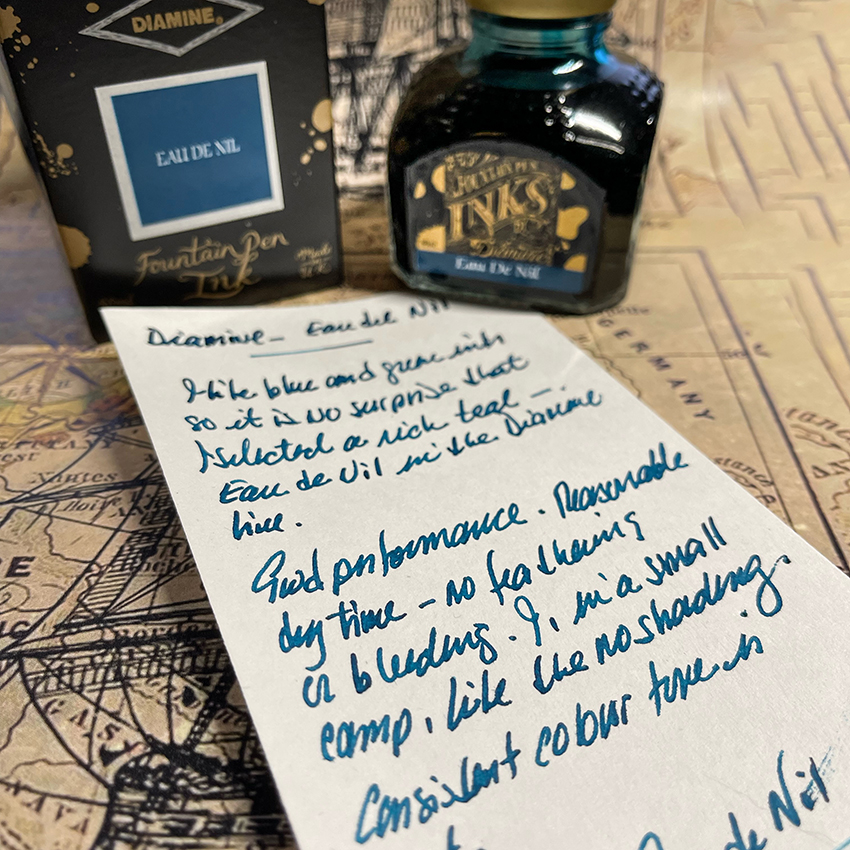 DIAMINE®
EAU DE NIL
Fountain Pen
Ink
FOUNTAIN PEN
INKS
BY
Diamine
Eau De Nil
Diamine - Eau de Nil
I like blue and green inks
so it is no surprise that
I selected a rich teal —
Eau de Nil in the Diamine
line.
Good performance. Reasonable
dry time – no feathering
or bleeding. I, in a small
camp, like the no shading.
Consistent colour tone in
de Nil
GERMANY
NANTES
Loire
GASC